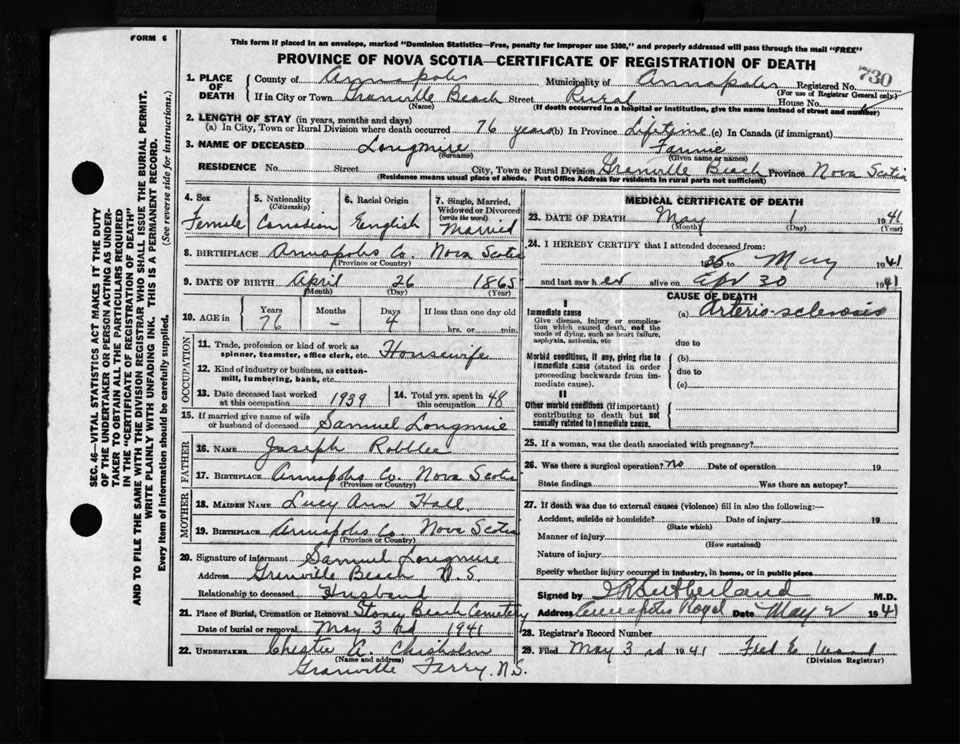 FORM 6
This form if placed in an envelope, marked "Dominion Statistics—Free, penalty for improper use $300," and properly addressed will pass through the mail "FREE"
PROVINCE OF NOVA SCOTIA—CERTIFICATE OF REGISTRATION OF DEATH
730
1. PLACE OF DEATH County of Annapolis Municipality of Annapolis Registered No.
(For use of Registrar General only)
If in City or Town Granville Beach Street Rural House No.
(Name) (If death occurred in a hospital or institution, give the name instead of street and number)
2. LENGTH OF STAY (in years, months and days)
(a) In City, Town or Rural Division where death occurred 76 years (b) In Province Lifetime (c) In Canada (if immigrant)
3. NAME OF DECEASED Longmire Fannie
(Surname) (Given name or names)
RESIDENCE No. Street City, Town or Rural Division Granville Beach Province Nova Scotia
(Residence means usual place of abode. Post Office Address for residents in rural parts not sufficient)
4. Sex Female
5. Nationality (Citizenship) Canadian
6. Racial Origin English
7. Single, Married, Widowed or Divorced (write the word) Married
8. BIRTHPLACE Annapolis Co. Nova Scotia
(Province or Country)
9. DATE OF BIRTH April 26 1865
(Month) (Day) (Year)
10. AGE in Years 76 Months – Days 4 If less than one day old hrs. or min.
OCCUPATION
11. Trade, profession or kind of work as spinner, teamster, office clerk, etc. Housewife
12. Kind of industry or business, as cotton-mill, lumbering, bank, etc.
13. Date deceased last worked at this occupation 1939
14. Total yrs. spent in this occupation 48
15. If married give name of wife or husband of deceased Samuel Longmire
FATHER
16. NAME Joseph Robblee
17. BIRTHPLACE Annapolis Co. Nova Scotia
(Province or Country)
MOTHER
18. MAIDEN NAME Lucy Ann Hall
19. BIRTHPLACE Annapolis Co. Nova Scotia
(Province or Country)
20. Signature of informant Samuel Longmire
Address Granville Beach N.S.
Relationship to deceased Husband
21. Place of Burial, Cremation or Removal Stoney Beach Cemetery
Date of burial or removal May 3rd 1941
22. UNDERTAKER Chester A. Chisholm
(Name and address)
Granville Ferry, N.S.
MEDICAL CERTIFICATE OF DEATH
23. DATE OF DEATH May 1 1941
(Month) (Day) (Year)
24. I HEREBY CERTIFY that I attended deceased from:
1936 to May 1941
and last saw her alive on Apr 30 1941
CAUSE OF DEATH
I
Immediate cause
Give disease, injury or complication which caused death, not the mode of dying, such as heart failure, asphyxia, asthenia, etc
(a) Arterio-sclerosis
due to
Morbid conditions, if any, giving rise to immediate cause (stated in order proceeding backwards from immediate cause).
(b)
due to
(c)
II
Other morbid conditions (if important) contributing to death but not causally related to immediate cause.
25. If a woman, was the death associated with pregnancy?
26. Was there a surgical operation? no Date of operation 19
State findings Was there an autopsy?
27. If death was due to external causes (violence) fill in also the following:—
Accident, suicide or homicide? Date of injury 19
(State which)
Manner of injury
(How sustained)
Nature of injury
Specify whether injury occurred in industry, in home, or in public place
Signed by Sutherland M.D.
Address Annapolis Royal Date May 2 1941
28. Registrar's Record Number
29. Filed May 3rd 1941 Fred E
(Division Registrar)
SEC. 46—VITAL STATISTICS ACT MAKES IT THE DUTY
OF THE UNDERTAKER OR PERSON ACTING AS UNDER-
TAKER TO OBTAIN ALL THE PARTICULARS REQUIRED
IN THE "CERTIFICATE OF REGISTRATION OF DEATH"
AND TO FILE THE SAME WITH THE DIVISION REGISTRAR WHO SHALL ISSUE THE BURIAL PERMIT.
WRITE PLAINLY WITH UNFADING INK. THIS IS A PERMANENT RECORD.
Every item of information should be carefully supplied. (See reverse side for instructions.)